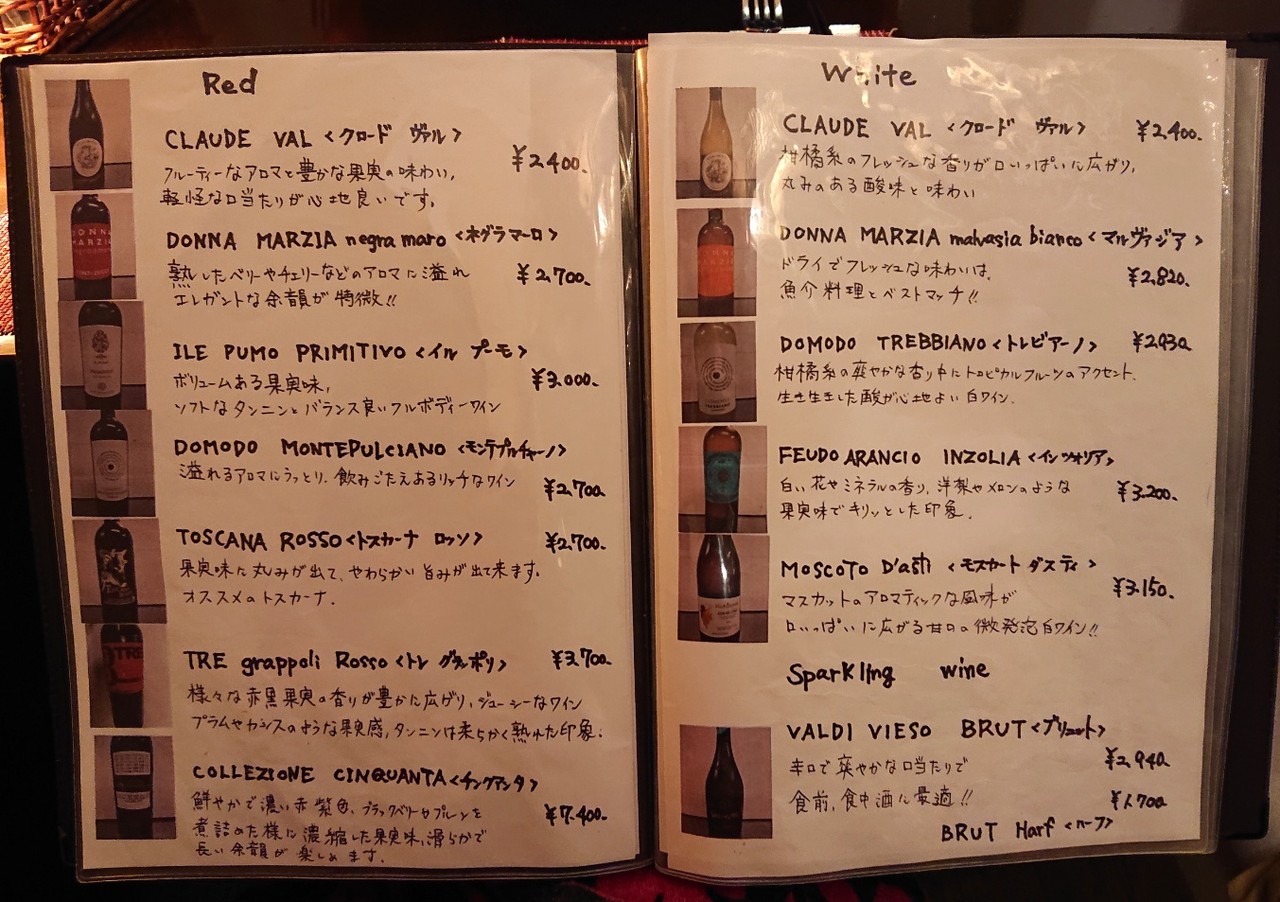 Red
CLAUDE VAL <クロード ヴァル>
¥2,400.
フルーティーなアロマと豊かな果実の味わい,
軽怪な口当たりが心地良いです。
DONNA MARZIA negramaro <ネグラマーロ>
熟したベリーやチェリーなどのアロマに溢れ
¥2,700.
エレガントな余韻が特徴!!
ILE PUMO PRIMITIVO <イル プーモ>
ボリュームある果実味,
¥3,000.
ソフトなタンニンとバランス良いフルボディーワイン
DOMODO MONTEPULCIANO <モンテプルチャーノ>
溢れるアロマにうっとり,飲みごたえあるリッチなワイン
¥2,700.
TOSCANA ROSSO <トスカーナ ロッソ>
¥2,700.
果実味に丸みが出て、やわらかい旨みが出て来ます.
オススメのトスカーナ.
TRE grappoli Rosso <トレ グラッポリ>
¥3,700.
様々な赤黒果実の香りが豊かに広がり,ジューシーなワイン
プラムやカシスのような果実感,タンニンは柔らかく熟れた印象.
COLLEZIONE CINQUANTA <チンクアンタ>
鮮やかで濃い赤紫色,ブラックベリーやプルーンを
¥7,400.
煮詰めた様に濃縮した果実味,滑らかで
長い余韻が楽しめます.
White
CLAUDE VAL <クロード ヴァル>
¥2,400.
柑橘系のフレッシュな香りが口いっぱいに広がり,
丸みのある酸味と味わい
DONNA MARZIA malvasia bianco <マルヴァジア>
ドライでフレッシュな味わいは、
¥2,820.
魚介料理とベストマッチ!!
DOMODO TREBBIANO <トレビアーノ>
¥2,930.
柑橘系の爽やかな香り中にトロピカルフルーツのアクセント.
生き生きした酸が心地よい白ワイン.
FEUDO ARANCIO INZOLIA <インツォリア>
白い花やミネラルの香り,洋梨やメロンのような
¥3,200.
果実味でキリッとした印象.
MOSCOTO D'asti <モスカート ダスティ>
マスカットのアロマティックな風味が
¥3,150.
口いっぱいに広がる甘口の微発泡白ワイン!!
Sparkling wine
VALDI VIESO BRUT <ブリュット>
辛口で爽やかな口当たりで
¥2,940.
食前,食中酒に最適!!
¥1,700
BRUT Harf <ハーフ>
DONNA
MARZIA
TRE